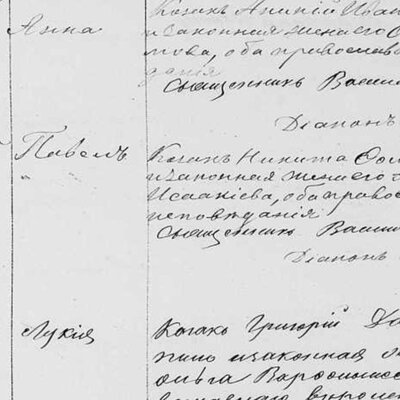 Козакъ Ананій Иван
Анна
и законная жена его О
мова, оба православ
данія
Священникъ Васил
Діаконъ
Павелъ
Козакъ Никита Ѳом
и законная жена его
Исаакіева, оба правос
исповѣданія
Священникъ Васил
Діаконъ
Лукія
Козакъ Григорій Да
и законная
Ольга Варѳоломе